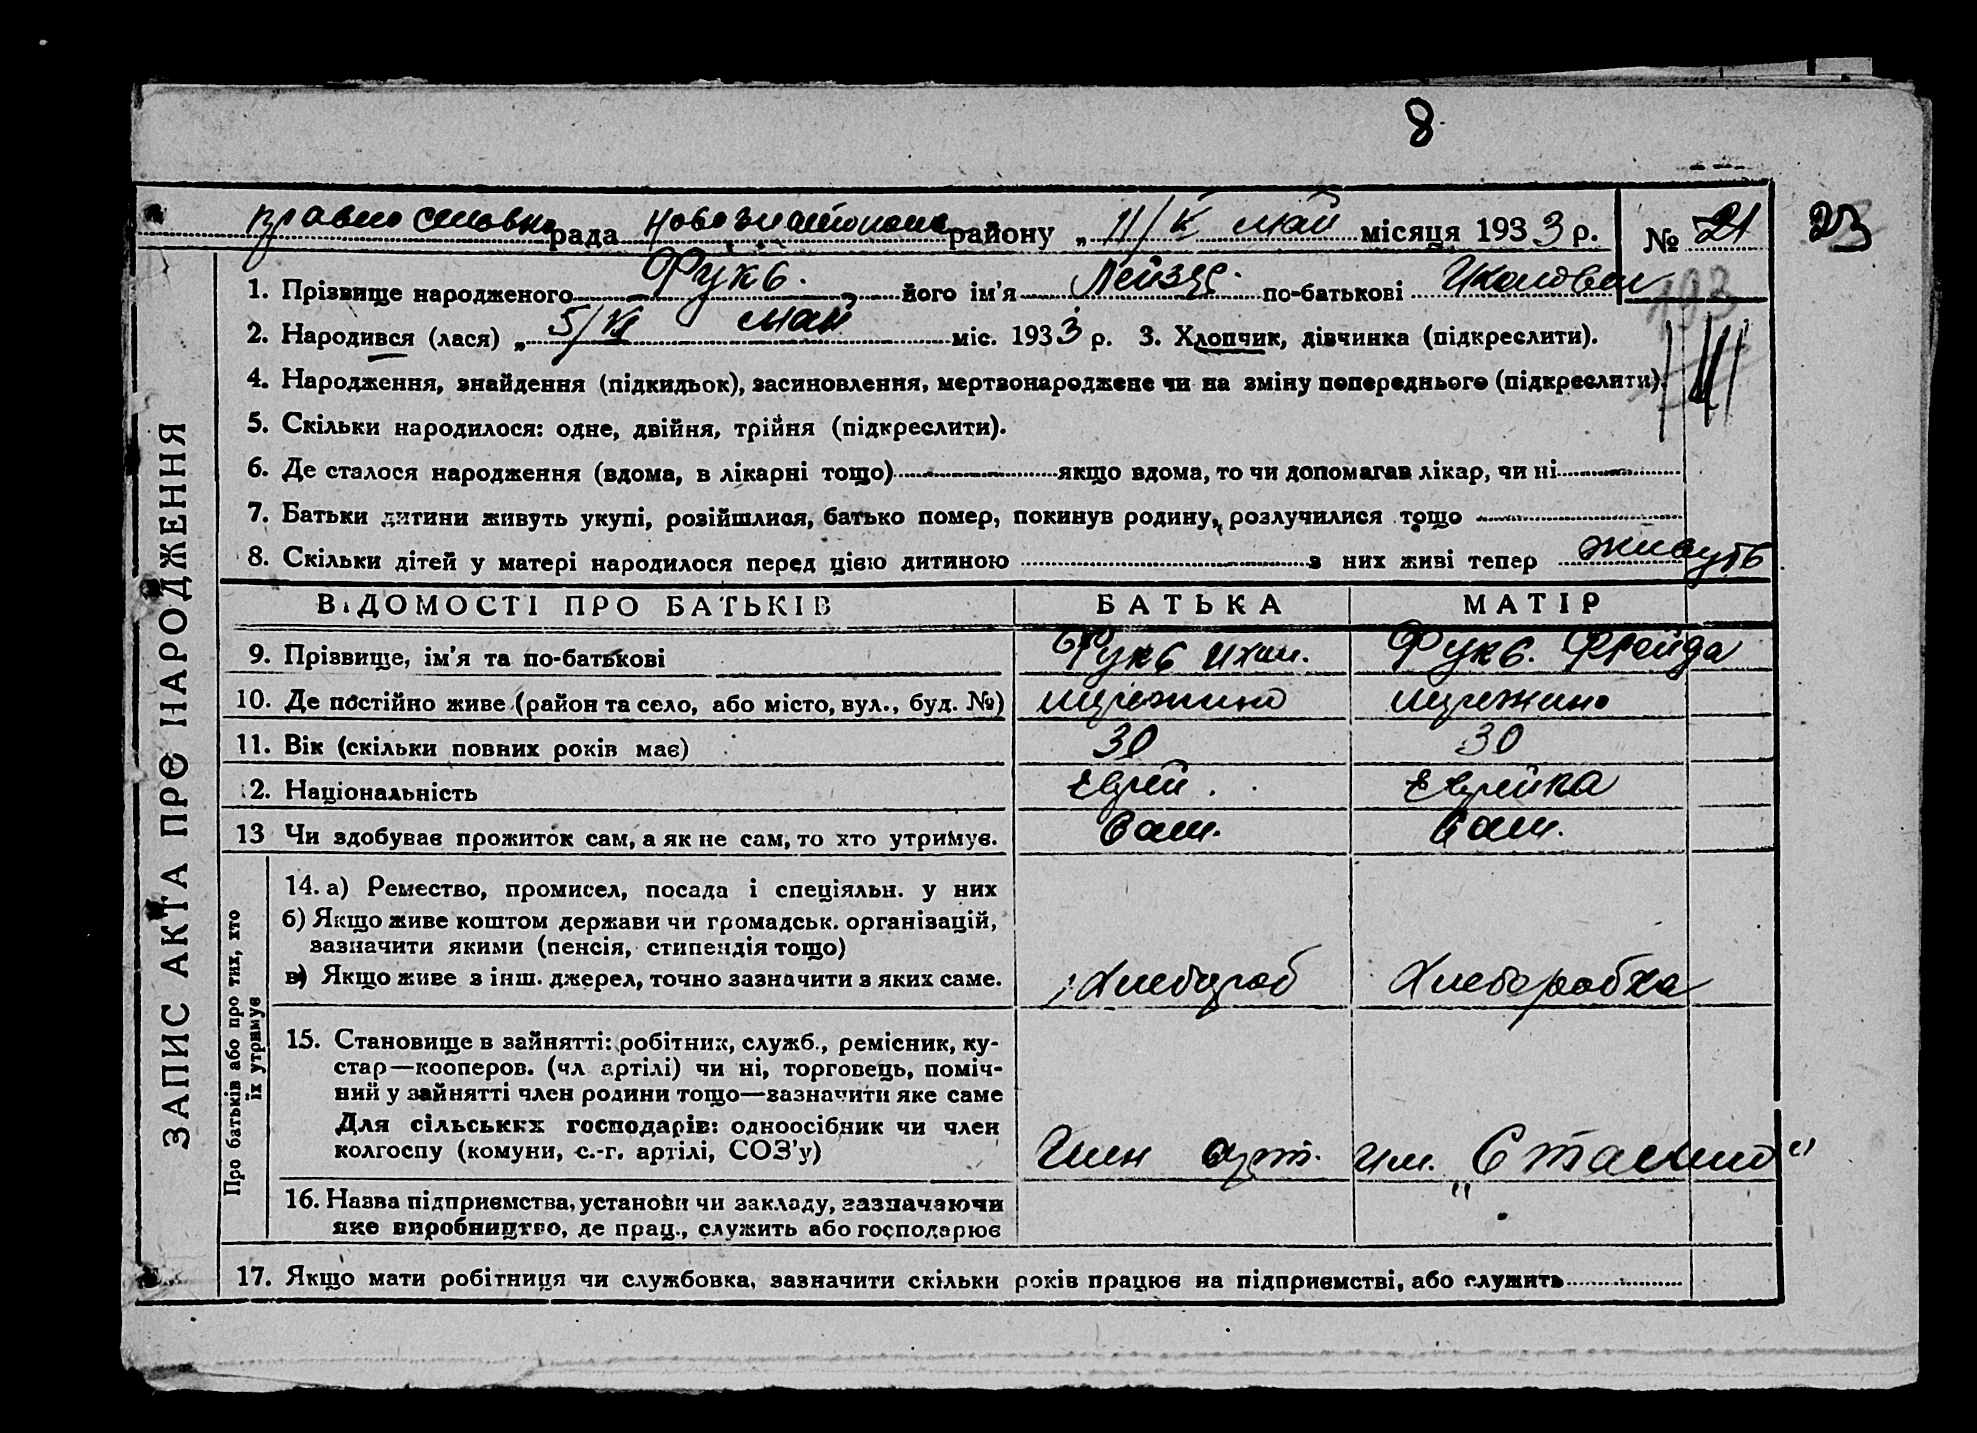 8
рада району „ 11/V май місяця 1933 р. № 21 23
1. Прізвище народженого Фукс. його ім'я Лейзер. по-батькові
2. Народився (лася) „ 5/VI май міс. 1933 р. 3. Хлопчик, дівчинка (підкреслити).
4. Народження, знайдення (підкидьок), засиновлення, мертвонароджене чи на зміну попереднього (підкреслити).
5. Скільки народилося: одне, двійня, трійня (підкреслити).
6. Де сталося народження (вдома, в лікарні тощо) якщо вдома, то чи допомагав лікар, чи ні
7. Батьки дитини живуть укупі, розійшлися, батько помер, покинув родину, розлучилися тощо
8. Скільки дітей у матері народилося перед цією дитиною з них живі тепер живуть
ВІДОМОСТІ ПРО БАТЬКІВ БАТЬКА МАТІР
9. Прізвище, ім'я та по-батькові Фукс Фукс. Фрейда
10. Де постійно живе (район та село, або місто, вул., буд. №)
11. Вік (скільки повних років має) 30 30
12. Національність Еврей. Еврейка
13 Чи здобуває прожиток сам, а як не сам, то хто утримує. Сам. Сам.
14. а) Ремество, промисел, посада і спеціяльн. у них
б) Якщо живе коштом держави чи громадськ. організацій,
зазначити якими (пенсія, стипендія тощо)
в) Якщо живе з інш. джерел, точно зазначити з яких саме. Хлебороб Хлеборобка
15. Становище в зайнятті: робітник, служб., ремісник, ку-
стар—кооперов. (чл артілі) чи ні, торговець, поміч-
ний у зайнятті член родини тощо—зазначити яке саме
Для сільських господарів: одноосібник чи член
колгоспу (комуни, с.-г. артілі, СОЗ'у) Член арт. им. "Сталина"
16. Назва підприємства, установи чи закладу, зазначаючи
яке виробництво, де прац., служить або господарює
17. Якщо мати робітниця чи службовка, зазначити скільки років працює на підприємстві, або служить
ЗАПИС АКТА ПРО НАРОДЖЕННЯ
Про батьків або про тих, хто
їх утримує